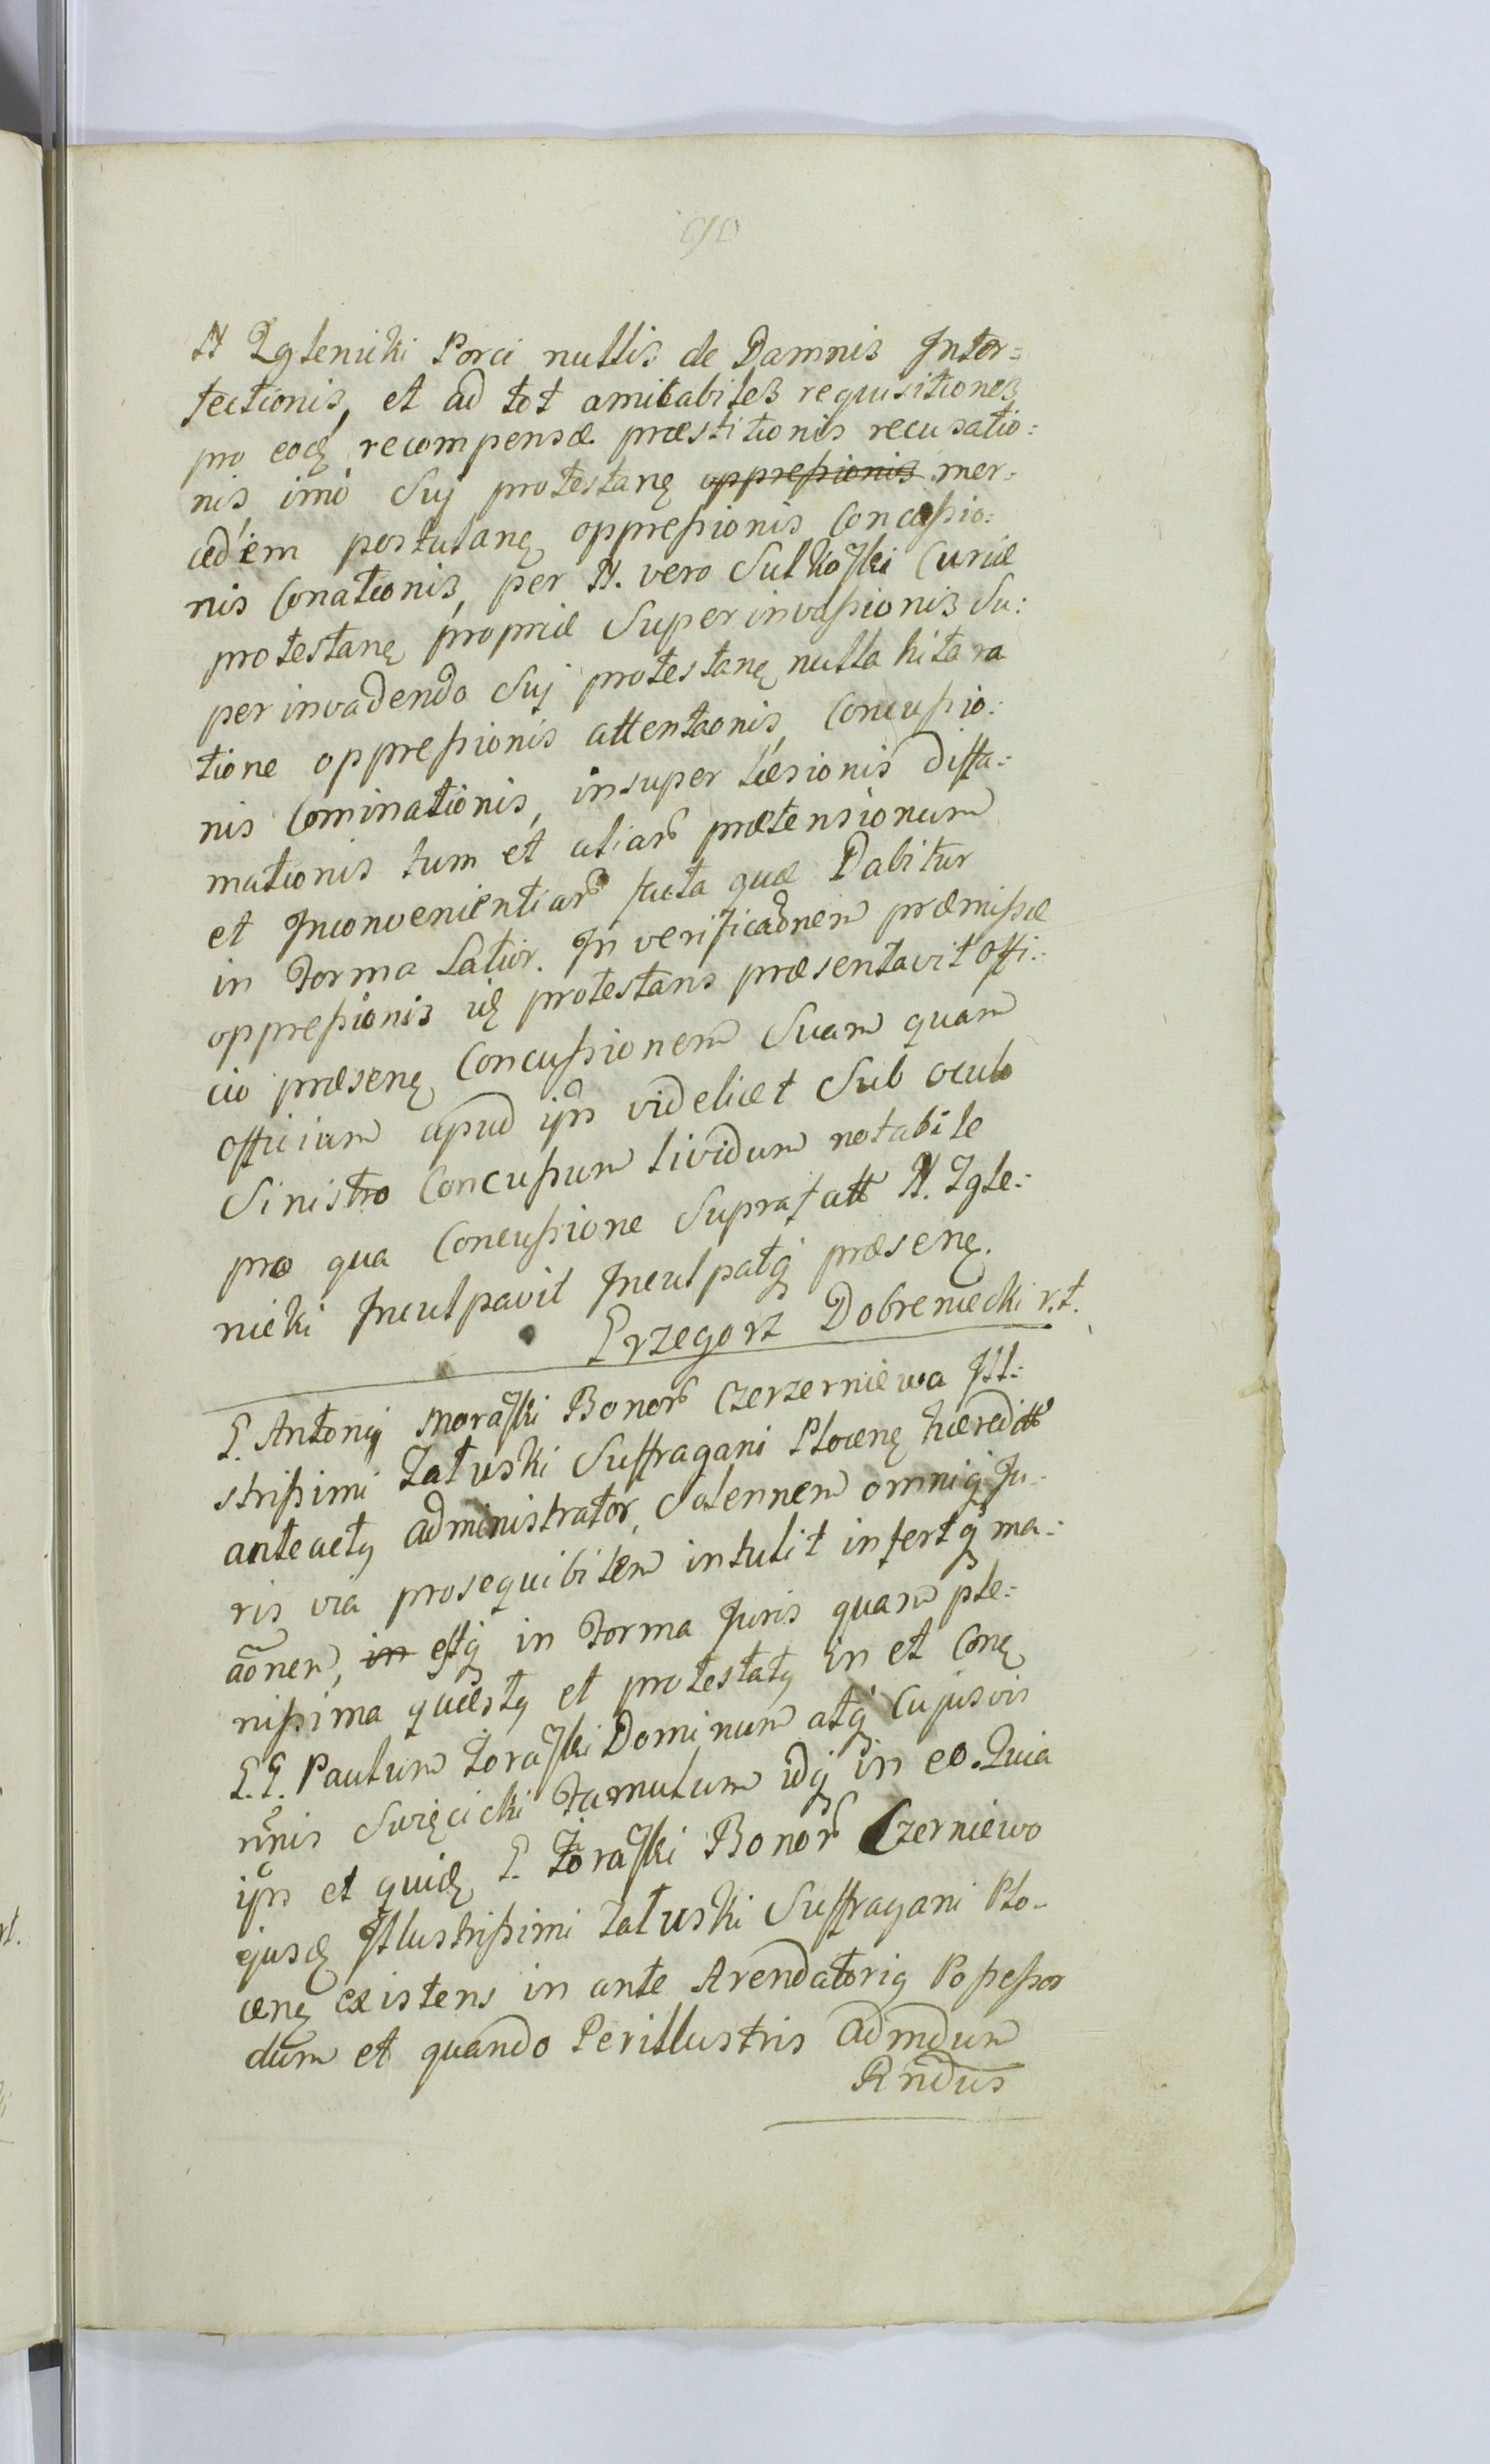 N Zglenicki Porci nullis de Damnis Inter=
fectionis, et ad tot amicabiles requisitiones
pro eodę recompensæ præstitionis recusatio:
nis, imo Suj protestanę oppreßionis mer:
cedem postulanę oppreßionis Concußio:
nis Conationis, per N. vero Sulkoſki Curiæ
protestanę propriæ Superinvaßionis Su:
perinvadendo Suj protestanę nulla hitara
tione oppreßionis attentaonis, Concußio:
nis Cominationis, insuper læsionis diffa:
mationis tum et aliar prætensionum
et Inconvenientiar facta quæ Dabitur
in Forma Latior. In verificaõnem præmißæ
oppreßionis idę protestans præsentavit Offi:
cio præsenę Concußionem Suam quam
Officium apud ipm videlicet Sub oculo
Sinistro Concußum lividum notabile
pro qua Concußione Suprafatt N. Zgle:
nicki Inculpavit Inculpatq præsenę.
Grzegorz Dobreniecki r.t.
G. Antonij Moraſki Bonor Czerzerniewa Ill:
strißimi Załuski Suffragani Plocenę hæreditt
anteactę administrator, Solennem omniq Ju:
ris via prosequibilem intulit infertq ma:
aõnen, in estq in Forma Juris quam ple:
nißima quæstę et protestatę in et Conę
G.G. Paulum Żoraſki Dominum atq Cujusvis
nõnis Święcicki Famulum idq in eo. Quia
ipm et quidę G. Żoraſki Bonor Czerniewo
ejusdę Illustrißimi Załuski Suffragani Plo:
cenę existens in ante Arendatorię Poßeßor
dum et quando Perillustris admdum
Rndus